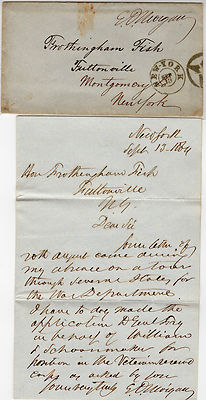 E. D. Morgan
Frothingham Fish
Fultonville
Montgomery
New York
NEW-YORK
New York
Sept. 13. 1864
Hon Frothingham Fish
Fultonville
N.Y.
Dear Sir
Your letter of
20th august came during
my absence on a tour
through several States, for
the War Department.
I have to day made the
application
in behalf of William
Schoonmaker for
position in the Veteran Reserve
Corps as asked by you
yours very truly E. D. Morgan